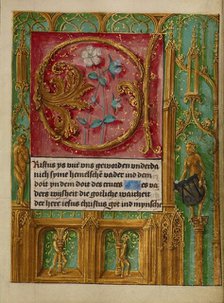 Cristus ys vur uns geworden underda
nich syme hemelschē vader und dem
doit yn dem doit des cruces es va
ders wisheit die gotliche waicheit
der here iesus christus got und mynsche